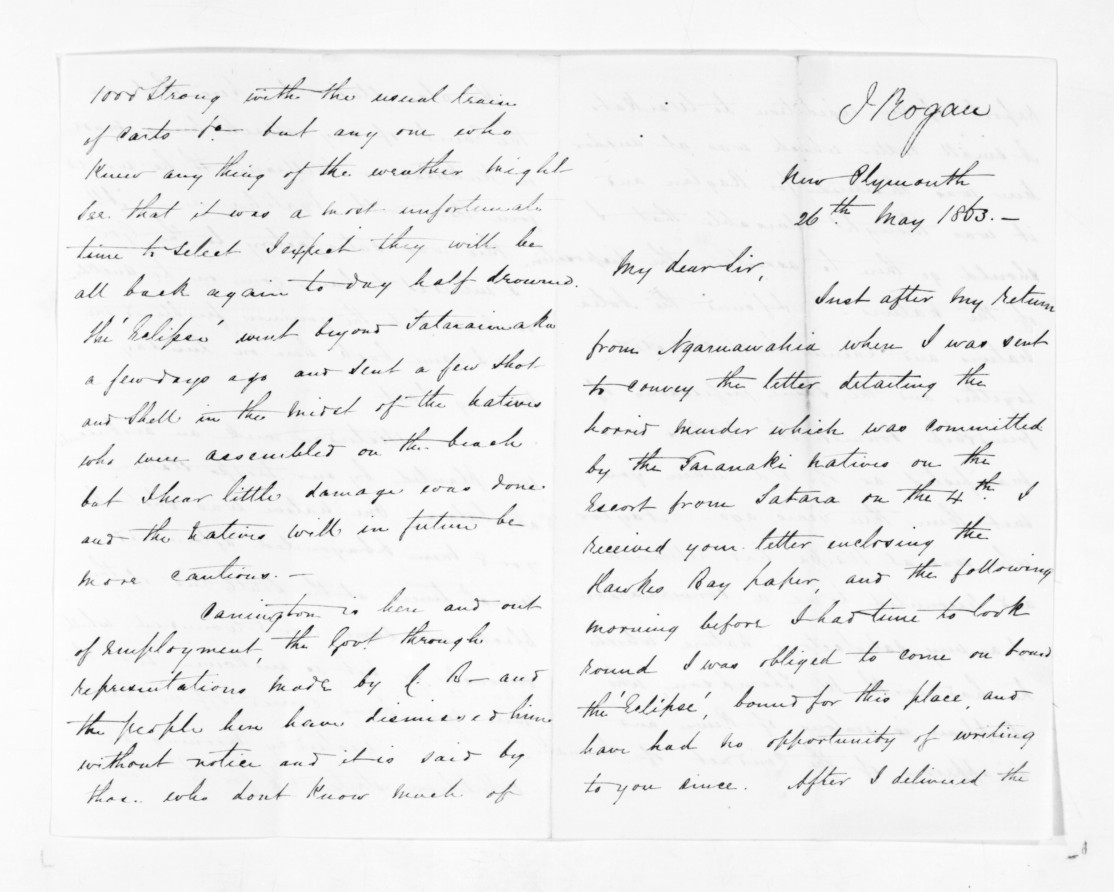 J Rogan
New Plymouth
26th May 1863. —
My dear Sir,
Just after my return
from Ngaruawahia where I was sent
to convey the letter detailing the
horrid murder which was committed
by the Taranaki Natives on the
Escort from Tatara on the 4th. I
received your letter enclosing the
Hawkes Bay paper, and the following
morning before I had time to look
round I was obliged to come on board
the 'Eclipse', bound for this place, and
have had no opportunity of writing
to you since. After I delivered the
1000 Strong with the usual train
of carts &c but any one who
knew any thing of the weather might
see that it was a most unfortunate
time to select I expect they will be
all back again to day half drowned.
The 'Eclipse' went beyond Tataraimaka
a few days ago and sent a few shot
and shell in the midst of the Natives
who were assembled on the beach
but I hear little damage was done
and the Natives will in future be
more cautious. —
Carrington is here and out
of employment, the Govt through
representations made by C. B— and
the people here have dismissed him
without notice and it is said by
those who dont know much of